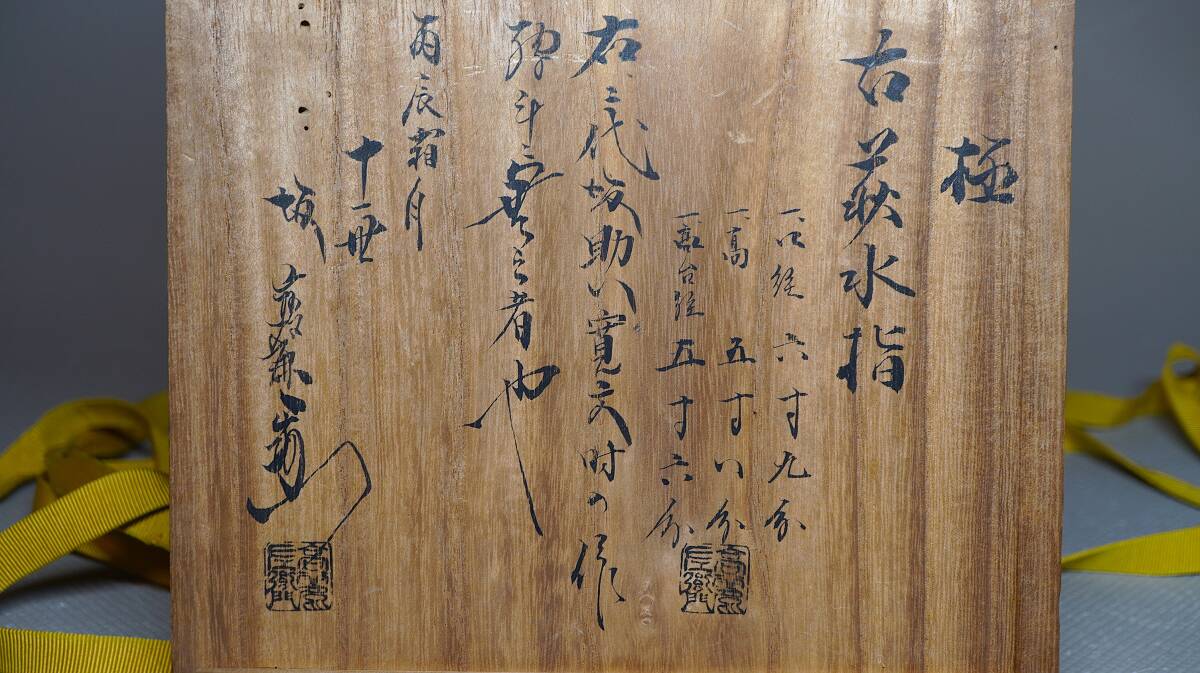 極
古萩水指
一口経 六寸九分
一高 五寸八分
一高台経 五寸六分
右、三代坂助八寛文時の作
疑無之者也
丙辰霜月
十一世
坂高麗左衛門